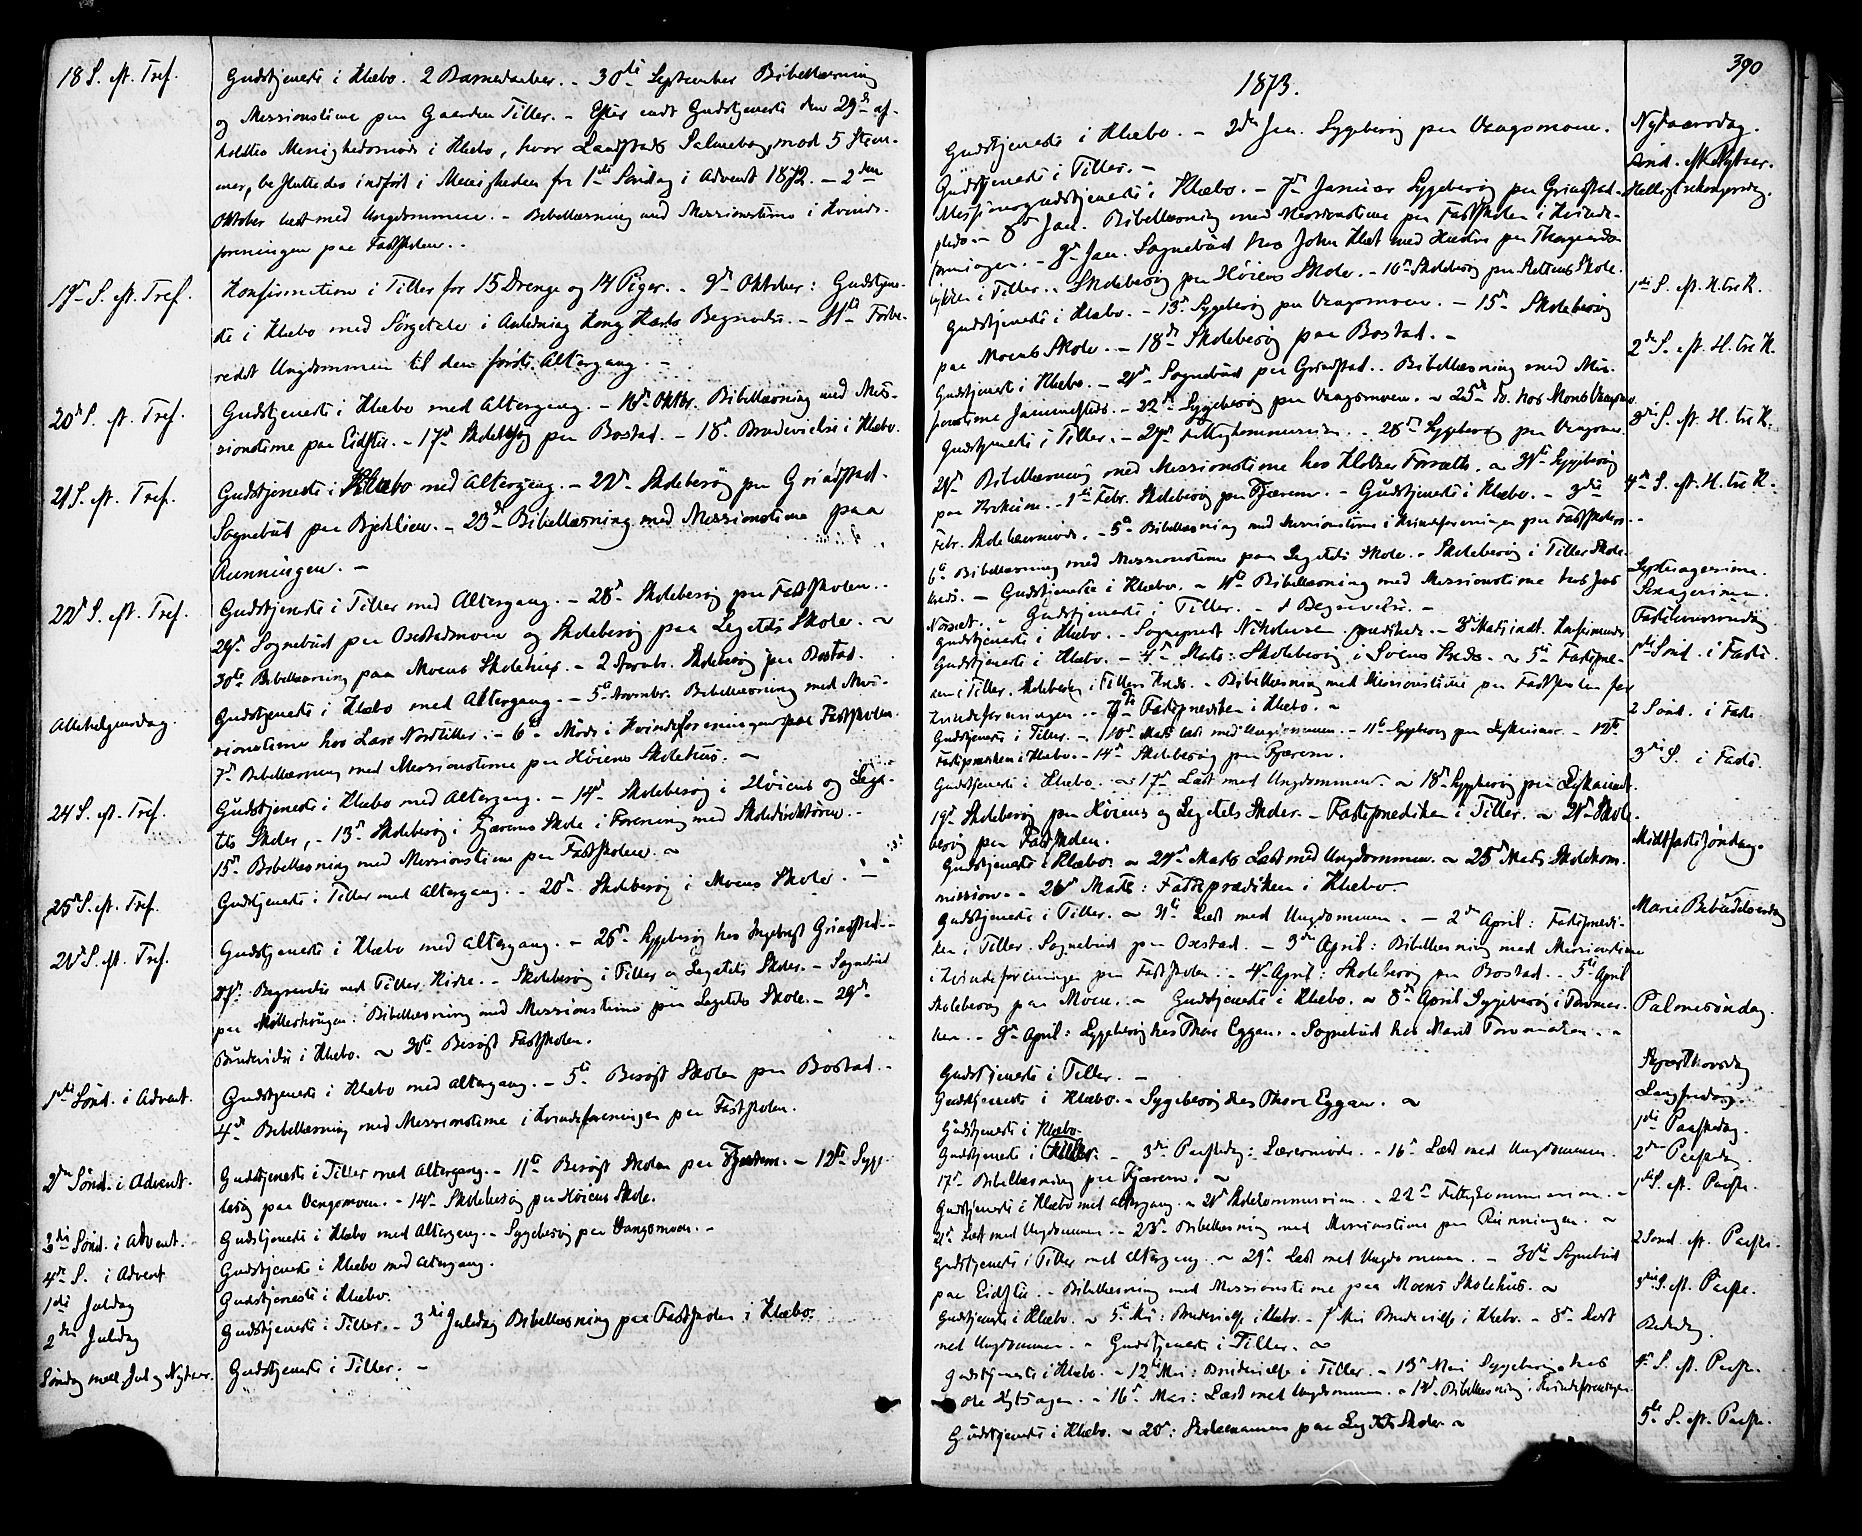 18 S. eft. Tref.
Gudstjeneste i Klæbo. 2 Barnedaaber. – 30te September Bibellæsning
og Missionstime paa Gaarden Tiller. – Efter endt Gudstjeneste den 29de af-
holdtes Menighedsmøde i Klæbo, hvor Landstads Salmebog, mod 5 Stem-
mer, besluttedes indført i Menigheden fra 1ste Søndag i Advent 1872. – 2den
Oktober læst med Ungdommen. – Bibellæsning med Missionstime i Kvinde-
foreningen paa Fastskolen. –
19de S. eft. Tref.
Konfirmation i Tiller for 15 Drenge og 14 Piger. – 9de Oktober: Gudstjene-
ste i Klæbo med Sørgetale i Anledning Kong Karls Begravelse. – 11te Forbe-
redet Ungdommen til den første Altergang. –
20de S. eft. Tref.
Gudstjeneste i Klæbo med Altergang. – 16de Oktbr. Bibellæsning med Mis-
sionstime paa Eidstu. – 17de Skolebesøg paa Bostad. – 18de Brudevielse i Klæbo.
21 S. eft. Tref.
Gudstjeneste i Klæbo med Altergang. – 22de Skolebesøg paa Grindstad.
Sognebud paa Bjerklien. – 23de Bibellæsning med Missionstime paa
Rønningen. –
22de S. eft. Tref.
Gudstjeneste i Tiller med Altergang. – 28de Skolebesøg paa Fastskolen. –
29de Sognebud paa Oxstadmoen og Skolebesøg paa Legatets Skole. –
30te Bibellæsning paa Moens Skolehus. – 2 Novbr. Skolebesøg paa Bostad.
Allehelgensdag.
Gudstjeneste i Klæbo med Altergang. – 5te Novembr. Bibellæsning med Mis-
sionstime hos Lars Nordtiller. – 6te Møde i Kvindeforeningen paa Fastskolen.
7de Bibellæsning med Missionstime paa Høiens Skolehus. –
24 S. eft. Tref.
Gudstjeneste i Klæbo med Altergang. – 14de Skolebesøg i Høiens og Lega-
tets Skoler, – 13de Skolebesøg i Fjærems Skole i Forening med Skoledirektøren. –
15de Bibellæsning med Missionstime paa Fastskolen. –
25de S. eft. Tref.
Gudstjeneste i Tiller med Altergang. – 20de Skolebesøg i Moens Skole. –
26de S. eft. Tref.
Gudstjeneste i Klæbo med Altergang. – 26de Sygebesøg hos Ingebrigt Grindstad. –
27de Begravelse ved Tiller Kirke. – Skolebesøg i Tiller og Legatets Skoler. – Sognebud
paa Møllerhaugen. Bibellæsning med Missionstime paa Legatets Skole. – 29de
Brudevielse i Klæbo. – 30te Besøgt Fastskolen.
1ste Sønd. i Advent.
Gudstjeneste i Klæbo med Altergang. – 5te Besøgt Skolen paa Bostad. –
4de Bibellæsning med Missionstime i Kvindeforeningen paa Fastskolen.
2den Sønd. i Advent.
Gudstjeneste i Tiller med Altergang. – 11te Besøgt Skolen paa Fjærem. – 12te Syge-
besøg paa Vangsmoen. – 14de Skolebesøg paa Høiens Skole.
3die Sønd. i Advent.
Gudstjeneste i Klæbo med Altergang. – Sygebesøg paa Vangsmoen. –
4de S. i Advent
Gudstjeneste i Klæbo med Altergang.
1ste Juledag
Gudstjeneste i Klæbo.
2den Juledag
Gudstjeneste i Tiller. – 3die Juledag Bibellæsning paa Fastskolen i Klæbo.
Søndag mell. Jul og Nytaar.
Gudstjeneste i Tiller. –
390
1873.
Gudstjeneste i Klæbo. – 2den Jan. Sygebesøg paa Vangsmoen.
Nytaarsdag.
Gudstjeneste i Tiller. –
Sønd. eft. Nytaar.
Missionsgudstjeneste i Klæbo. – 7de Januar Sygebesøg paa Grindstad-
Helligtrekongersdag.
plads. – 8de Jan. Bibellæsning med Missionstime paa Fastskolen i Kvinde-
foreningen. – 9de Jan. Sognebud hos John Klæt med Hustru paa Thorgaards-
lykken i Tiller. – Skolebesøg paa Høiens Skole. – 10de Skolebesøg paa Rettens Skole.
Gudstjeneste i Klæbo. – 13de Sygebesøg paa Vangsmoen. – 15de Skolebesøg
1ste S. eft. H. tre K.
paa Moens Skole. – 18de Skolebesøg paa Bostad. –
Gudstjeneste i Klæbo. – 21de Sognebud paa Grindstad. – Bibellæsning med Mis-
2den S. eft. H. tre K.
sionstime sammesteds. – 22de Sygebesøg paa Vangsmoen. – 25de Do. hos Mons Vangsmo
Gudstjeneste i Tiller. – 27de Fattigkommission. – 28de Sygebesøg paa Vangsmo.
3die S. eft. H. tre K.
29de Bibellæsning med Missionstime hos Klokker Forseth. – 31te Sygebesøg
paa Krokum. – 1ste Febr. Skolebesøg paa Fjærem. – Gudstjeneste i Klæbo. – 3die
4de S. eft. H. tre K.
Febr. Skolelærermøde. – 5te Bibellæsning med Missionstime i Kvindeforeningen paa Fastskolen. –
6te Bibellæsning med Missionstime paa Legatets Skole. – Skolebesøg i Tiller Skole-
kreds. – Gudstjeneste i Klæbo. – 11te Bibellæsning med Missionstime hos Jens
Septuagesima.
Norset. – Gudstjeneste i Tiller. – 1 Begravelse. –
Sexagesima.
Gudstjeneste i Klæbo. – Sogneprest Nikolaisen prædikede. – 3de Marts indt. Konfirmander
Fastelavnssøndag
Gudstjeneste i Klæbo. – 4de Marts: Skolebesøg i Soens Kreds. – 5te Fastepræ-
1ste Sønd. i Faste.
ken i Tiller. Skolebesøg i Tillers Kreds. – Bibellæsning med Missionstime paa Fastskolen for
Kvindeforeningen. – 7de Fasteprædiken i Klæbo. –
Gudstjeneste i Tiller. – 10de Marts læst med Ungdommen. – 11te Sygebesøg paa Lysklætten. – 12te
2 Sønd. i Faste
Fasteprædiken i Klæbo. – 14de Skolebesøg paa Fjærem.
Gudstjeneste i Klæbo. – 17de Læst med Ungdommen. – 18de Sygebesøg paa Lysklætt.
3die S. i Faste.
19de Skolebesøg paa Høiens og Legatets Skoler. – Fasteprædiken i Tiller. – 21de Skole-
besøg paa Fastskolen.
Gudstjeneste i Klæbo. – 24de Marts Læst med Ungdommen. – 25de Marts Skolekom-
Midtfastesøndag.
mission. – 26de Marts: Fasteprædiken i Klæbo. –
Gudstjeneste i Tiller. – 31te Læst med Ungdommen. – 2den April: Fastepræ-
Mariæ Bebudelsesdag
ken i Tiller. Sognebud paa Oxstad. – 3die April: Bibellæsning med Missionstime
i Kvindeforeningen paa Fastskolen. – 4de April: Skolebesøg paa Bostad. – 5te April
Skolebesøg paa Moen. – Gudstjeneste i Klæbo. – 8de April Sygebesøg i Tanem-
Palmesøndag.
ken. – 9de April: Sygebesøg hos Thore Eggan. – Sognebud hos Marit Torvmarken. –
Gudstjeneste i Tiller. –
Skjærthorsdag
Gudstjeneste i Klæbo. – Sygebesøg hos Thore Eggan. –
Langfredag.
Gudstjeneste i Klæbo.
1ste Paaskedag.
Gudstjeneste i Tiller. – 3die Paaskedag: Lærermøde. – 16de Læst med Ungdommen.
2den Paaskedag.
17de Bibellæsning paa Fjærem. –
Gudstjeneste i Klæbo med Altergang. – 21de Skolekommission. – 22de Fattigkommission. –
1ste S. eft. Paaske.
21de Læst med Ungdommen. – 23de Bibellæsning med Missionstime paa Rønningen. –
Gudstjeneste i Tiller med Altergang. – 29de Læst med Ungdommen. – 30te Sognebud
2 Sønd. eft. Paaske.
paa Eidstu. – Bibellæsning med Missionstime paa Moens Skolehus. –
Gudstjeneste i Klæbo. – 5te Mai: Brudevielse i Klæbo. – Mai Brudevielse i Klæbo. – 8de Læst
3die S. eft. Paaske.
med Ungdommen. – Gudstjeneste i Tiller. –
Bededag.
Gudstjeneste i Klæbo. – 12te Mai: Brudevielse i Tiller. – 13de Mai Sygebesøg hos
4de S. eft. Paaske.
Ole Nytrøen. – 16de Mai: Læst med Ungdommen. – Bibellæsning i Kvindeforeningen.
Gudstjeneste i Klæbo. – 20de: Skoleexamen paa Legatets Skole. –
5te S. eft. Paaske.